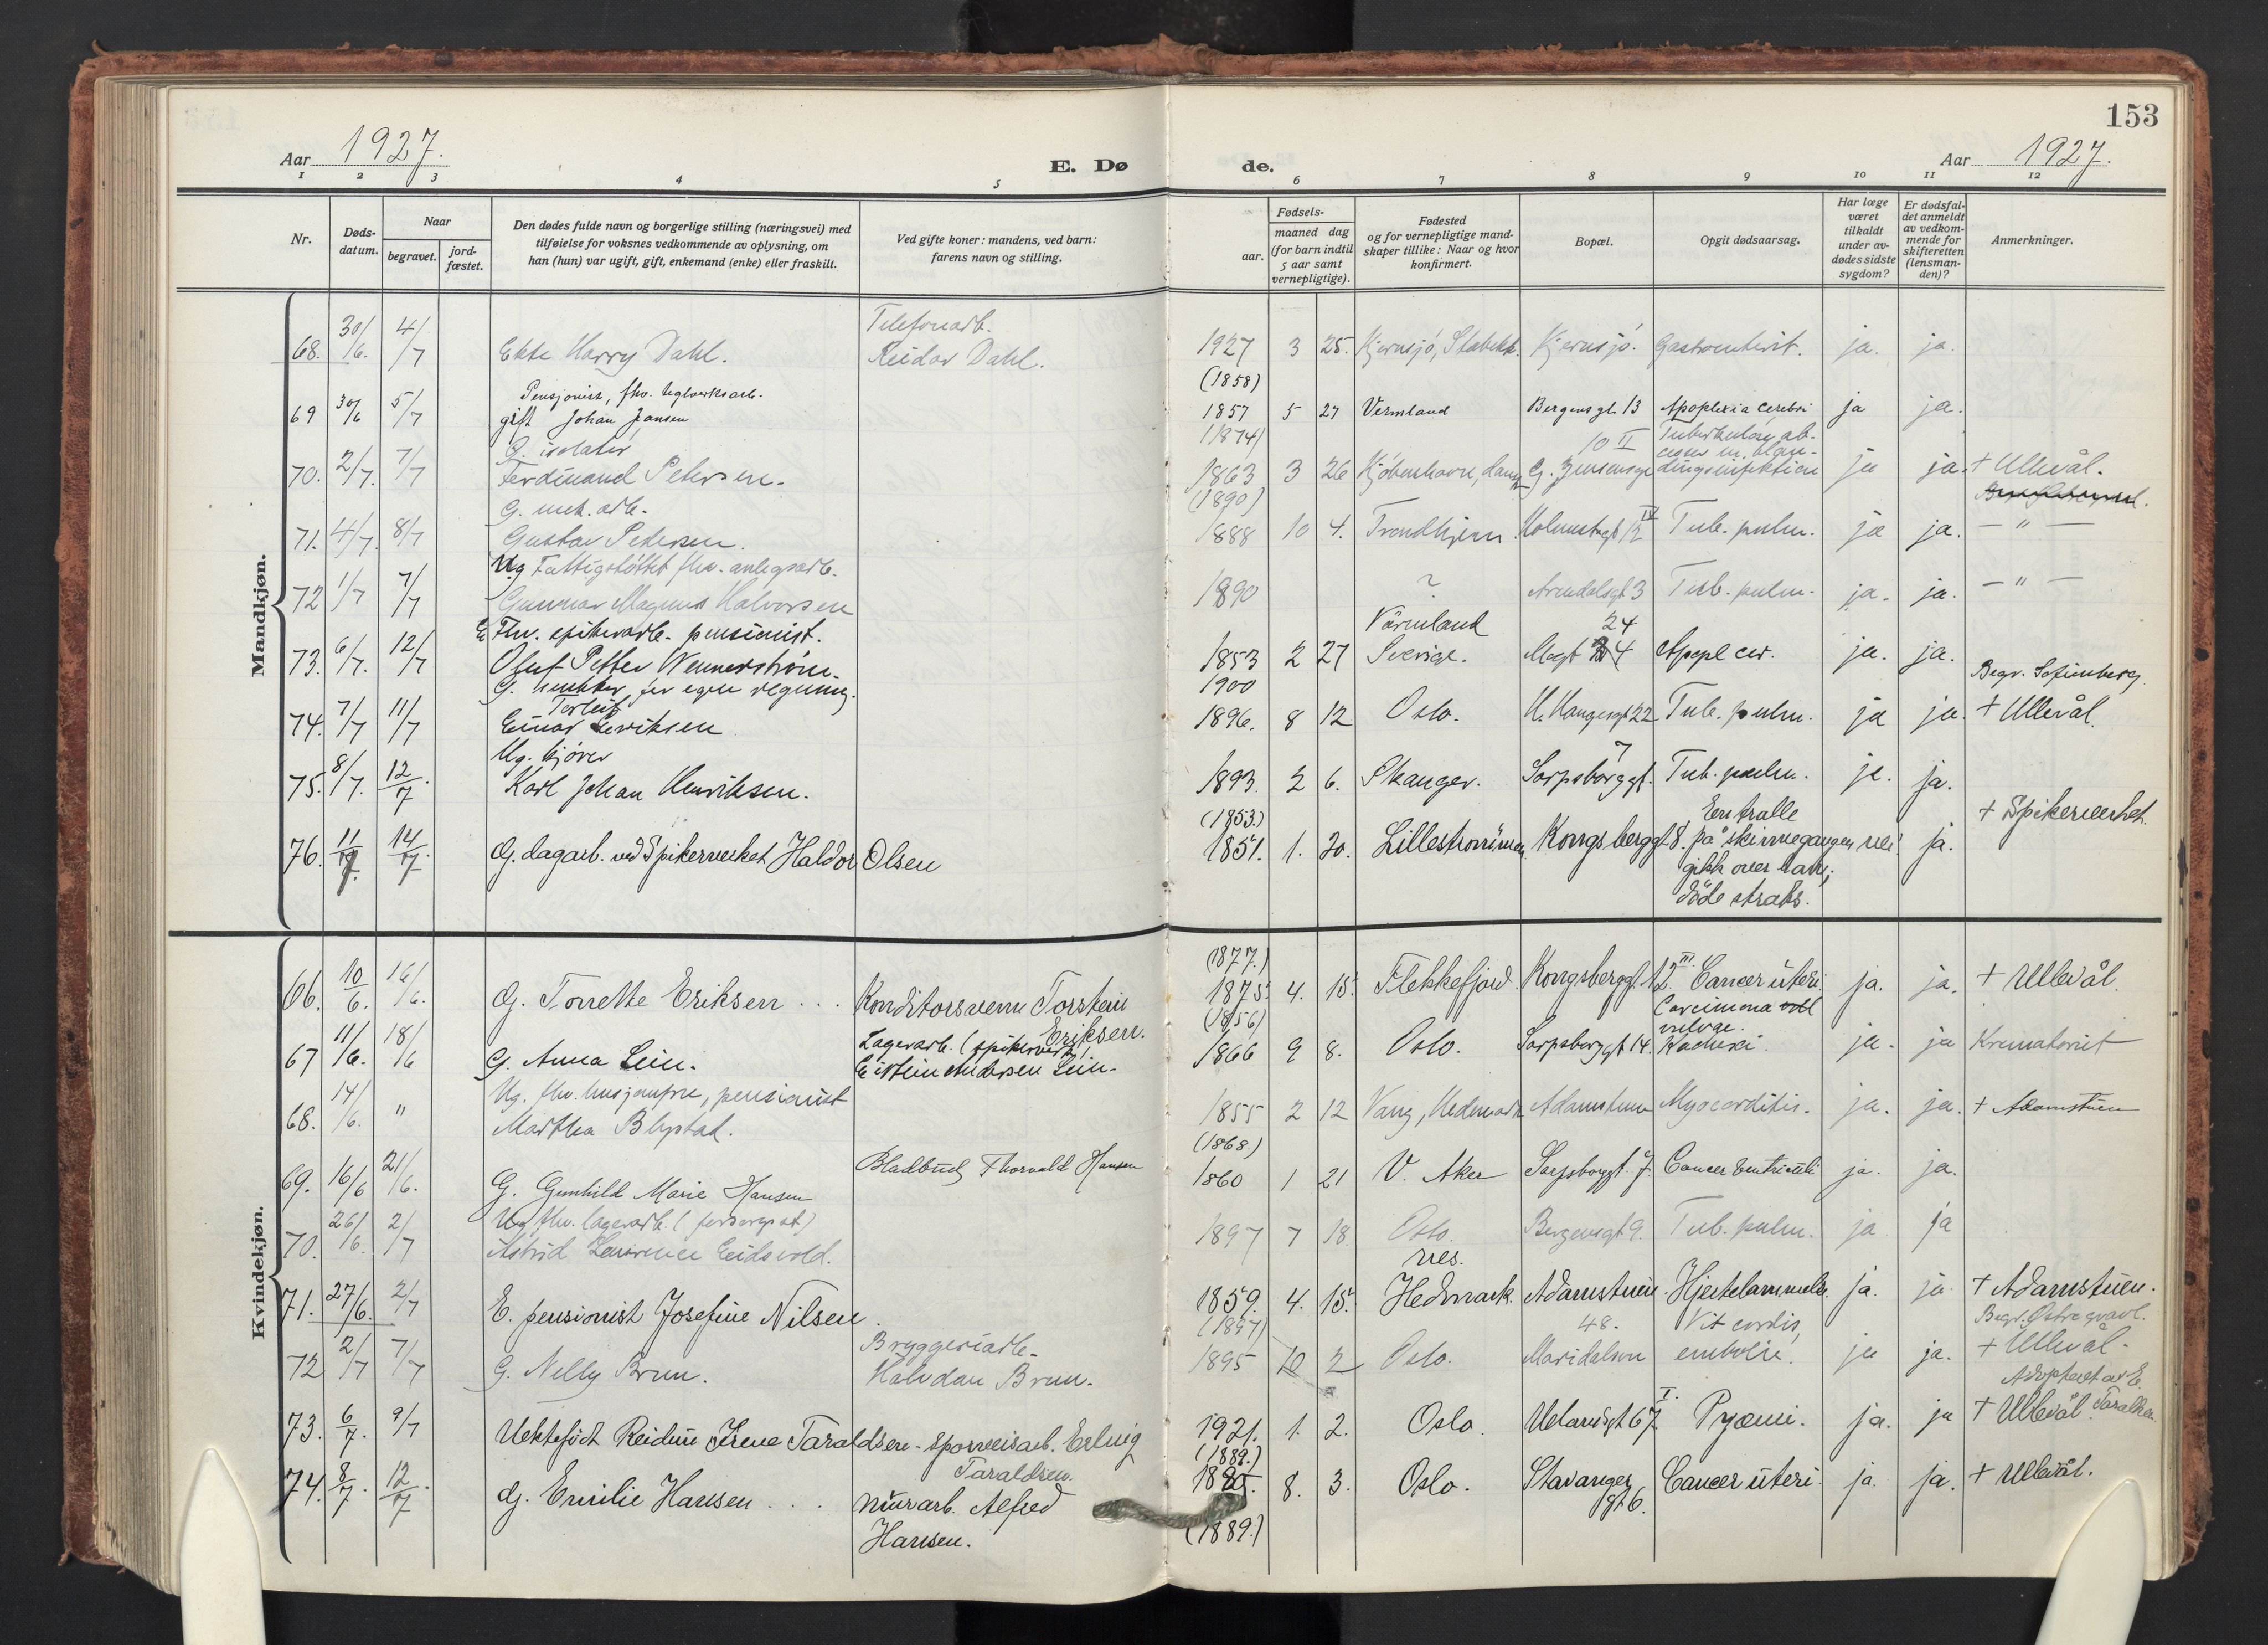 153
Aar 1927.
E. Dø
de.
Aar 1927.
1 2 3 4 5 6 7 8 9 10 11 12
Nr.
Døds-
datum.
Naar
begravet.
jord-
fæstet.
Den dødes fulde navn og borgerlige stilling (næringsvei) med
tilføielse for voksnes vedkommende av oplysning, om
han (hun) var ugift, gift, enkemand (enke) eller fraskilt.
Ved gifte koner: mandens, ved barn:
farens navn og stilling.
Fødsels-
aar.
maaned dag
(for barn indtil
5 aar samt
vernepligtige).
Fødested
og for vernepligtige mand-
skaper tillike: Naar og hvor
konfirmert.
Bopæl.
Opgit dødsaarsag.
Har læge
været
tilkaldt
under av-
dødes sidste
sygdom?
Er dødsfal-
det anmeldt
av vedkom-
mende for
skifteretten
(lensman-
den)?
Anmerkninger.
Mandkjøn.
Telefonarb.
68. 30/6. 4/7 Ekte Harry Dahl. Reidar Dahl. 1927 3 25. Kjernsjö, Stabekk. Kjernsjö. Gastroenterit. ja. ja.
Pensjonist, fhv. teglverksarb. (1858)
69 30/6 5/7 gift Johan Jansen 1857 5 27 Vermland Bergensgt. 13 Apoplexia cerebri ja ja.
G. isolatör (1874) 10 II Tuberkuløs ab-
70. 2/7. 7/7 Ferdinand Petersen. 1863 3 26 Kjöbenhavn, G. Jensensgt dingsinfektion ja ja. + Ullevål.
G. mek. arb. (1890)
71. 4/7. 8/7 Gustav Pedersen. 1888 10 4. Trondhjem. Holmstagt 12 IV Tub. pulm. ja ja. — " —
Ug Fattigstöttet fhv. anlegsarb.
72 1/7 7/7 Gunnar Magnus Halvorsen 1890 ? Arendalsgt 3 Tub. pulm. ja. ja. — " —
E. Fhv. spikerarb. pensionist. Värmland 24
73. 6/7. 12/7 Oluf Petter Wennerström. 1853 2 27 Sverige. Apopl cer. ja. ja.
G. snekker, for egen regning. 1900 Begr. Sofienberg
Torleif
74. 7/7 11/7 Einar Henriksen 1896. 8 12 Oslo. H. Haugesgt 22 Tub. pulm. ja ja. + Ullevål.
Ug. kjörer 7
75. 8/7. 12/7. Karl Johan Henriksen. 1893. 2 6. Stanger. Sarpsborggt. Tub. pulm. ja. ja.
(1853.) En tralle + Spikerverket.
76. 11/7. 14/7. G. dagarb. ved Spikerverket Haldor Olsen 1851. 1. 20. Lillestrømmen Kongsberggt 8. på skinnegangen nei. ja.
gikk over ham;
döde straks.
Kvindekjøn.
(1877.)
66. 10/6. 16/6. G. Tonette Eriksen . . . Konditorsvenn Torstein 1875. 4. 15. Flekkefjord. Kongsberggt. 12 III. Cancer uteri. ja. ja. + Ullevål.
Eriksen. (1856) Carcinoma
Lagerarb. (spikerverk) vulvae.
67 11/6. 18/6 G. Anna Lein. Eistein Andersen Lein. 1866 9 8. Oslo. Sarpsborggt 14. Kachexi. ja. ja Krematoriet
Ug. fhv. husjomfru, pensionist
68. 14/6. " Martha Blystad. 1855 2 12 Vang, Hedmark Adamstuen Myocarditis. ja. ja. + Adamstuen
(1868.)
69. 16/6 21/6. G. Gunhild Marie Hansen Bladbud Thorvald Hansen 1860 1 21 V. Aker Sarpsborggt. 7. Cancer Ventriculi ja. ja.
Ug fhv. lagerarb. (forsorgsat)
70. 26/6. 2/7 Astrid Laurence Eidsvold. 1897 7 18. Oslo. Bergensgt 9. Tub. pulm. ja ja
nes.
71. 27/6. 2/7 E. pensionist Josefine Nilsen. 1859. 4. 15. Hedmark. Adamstuen Hjertelammelse. ja. ja. + Adamstuen.
Bryggeriarb. (1897) 48. Vit cordis, Begr. Østre gravl.
72 2/7 7/7 G. Nelly Brun. Halvdan Brun. 1895 10 2 Oslo. Maridalsvn emboli. ja ja. + Ullevål.
Adoptert av E.
Taraldsen
73. 6/7. 9/7 Uektefödt Reidun Irene Taraldsen - sporveisarb. Erling 1921. 1. 2. Oslo. Uelandsgt 67 I. Pyæmi. ja. ja + Ullevål.
Taraldsen. (1882.)
74. 8/7. 12/7. G. Emilie Hansen . . . murarb. Alfred 8. 3. Oslo. Stavanger Cancer uteri. ja. ja. + Ullevål.
Hansen. (1889.) gt 6.